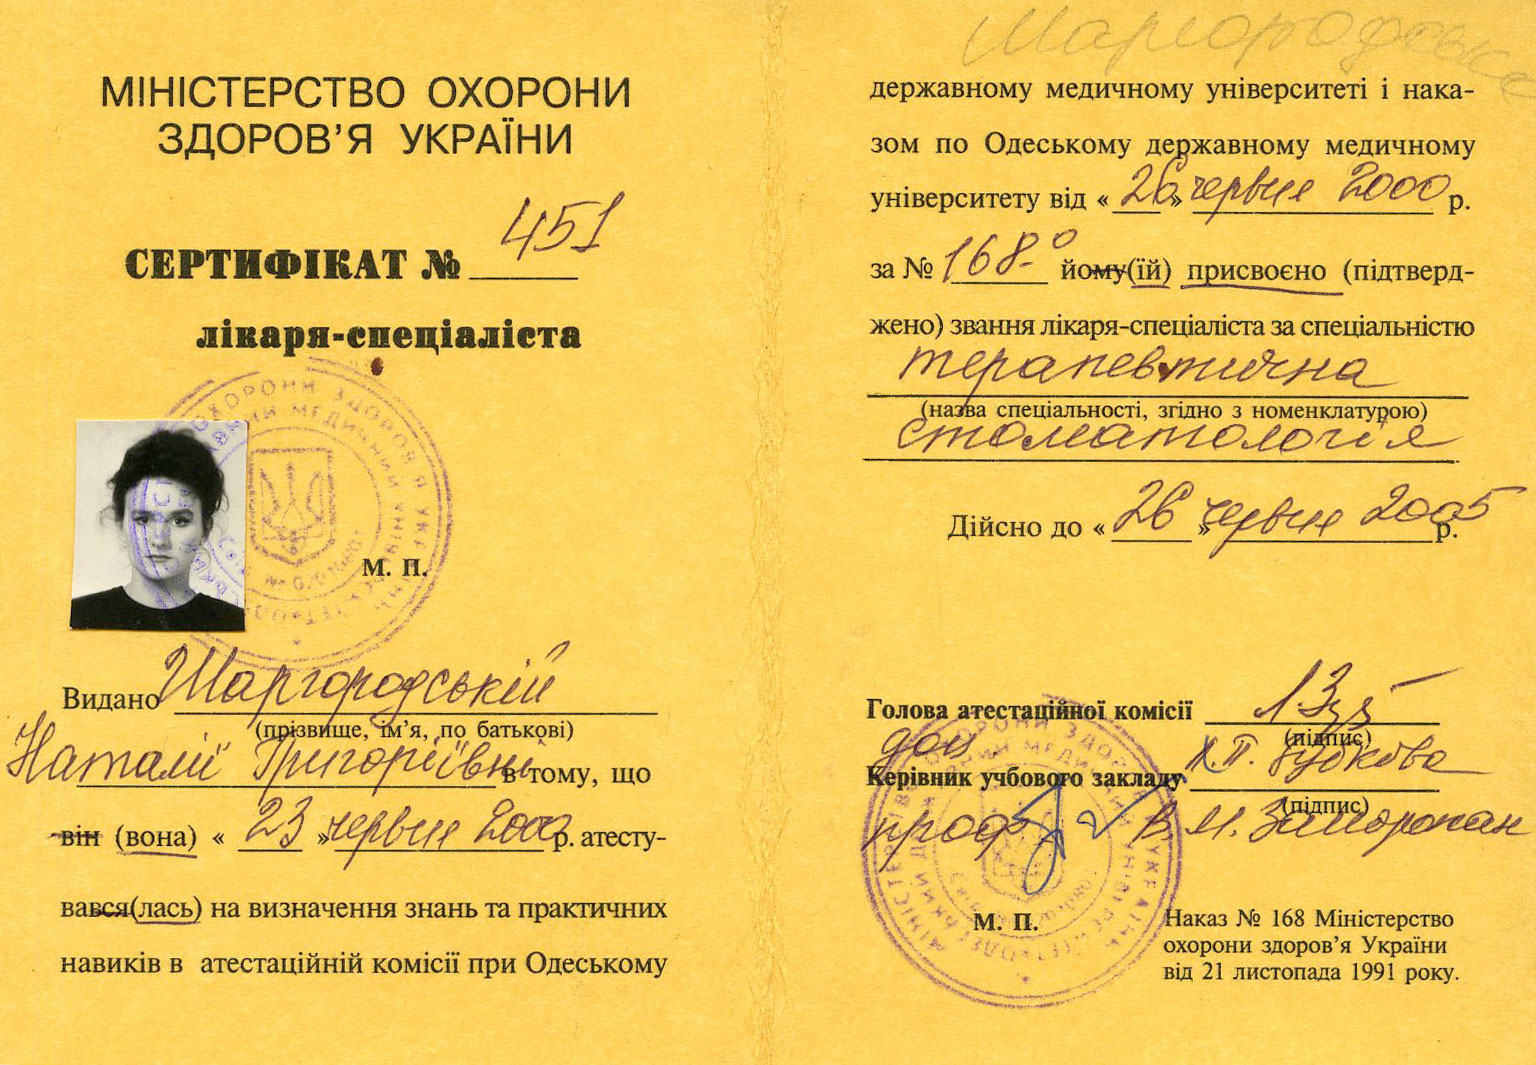 МІНІСТЕРСТВО ОХОРОНИ
ЗДОРОВ'Я УКРАЇНИ
СЕРТИФІКАТ № 451
лікаря-спеціаліста
М. П.
Видано Шаргородській
(прізвище, ім'я, по батькові)
Наталії Григоріївні в тому, що
він (вона) « 23 » червня 2000 р. атесту-
вався(лась) на визначення знань та практичних
навиків в атестаційній комісії при Одеському
державному медичному університеті і нака-
зом по Одеському державному медичному
університету від « 26 » червня 2000 р.
за № 168-о йому(їй) присвоєно (підтверд-
жено) звання лікаря-спеціаліста за спеціальністю
терапевтична
(назва спеціальності, згідно з номенклатурою)
стоматологія
Дійсно до « 26 » червня 2005 р.
Голова атестаційної комісії
(підпис)
Керівник учбового закладу
(підпис)
проф. В.М. Запорожан
М. П.
Наказ № 168 Міністерство
охорони здоров'я України
від 21 листопада 1991 року.